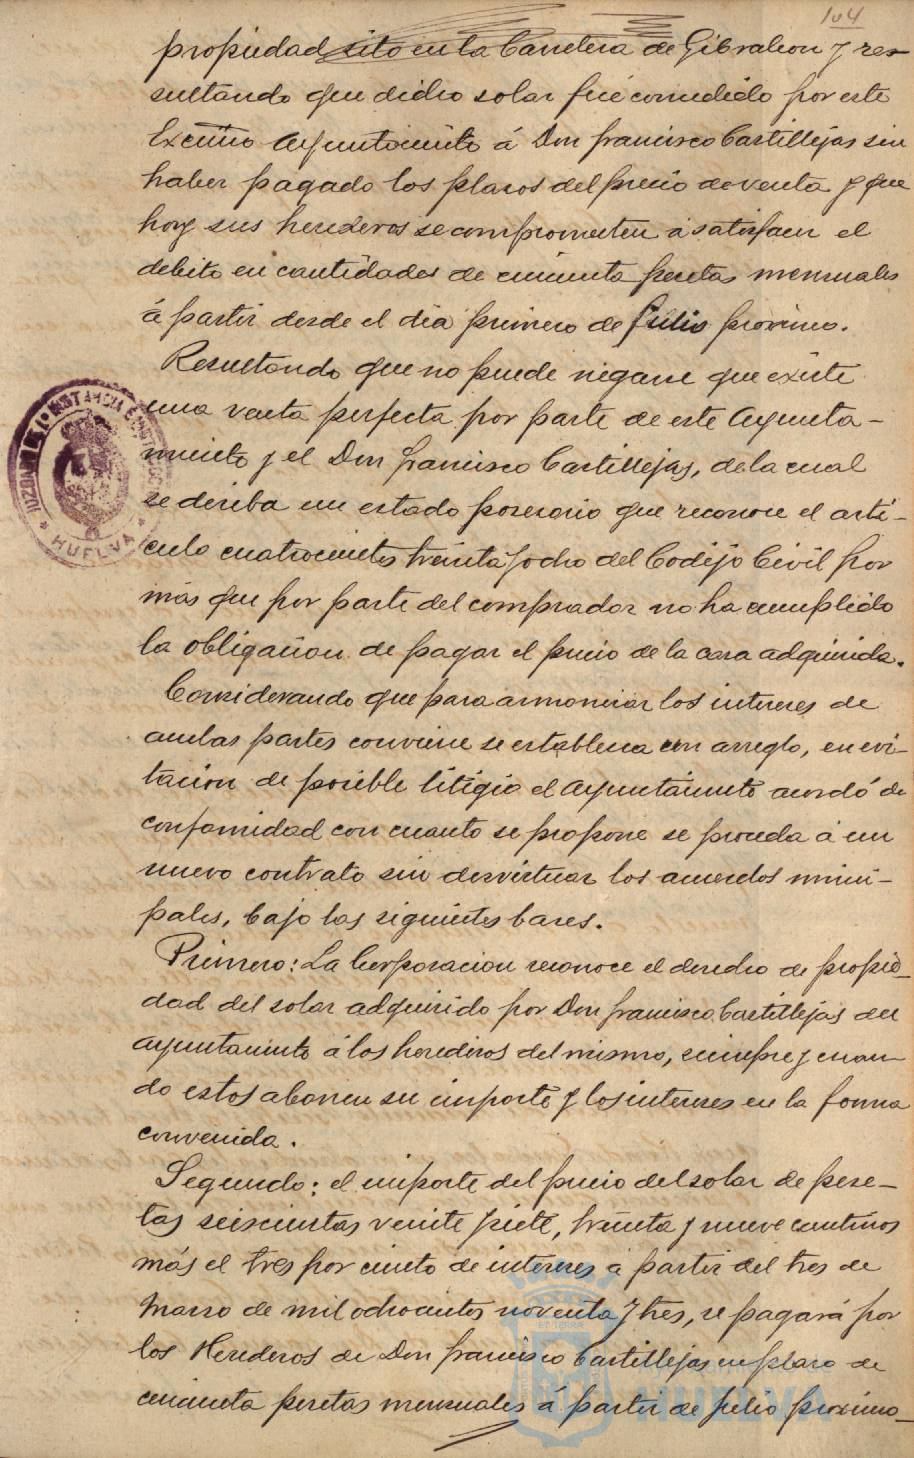 104
propiedad sito en la Carretera de Gibraleon y re-
sultando que dicho solar fué concedido por este
Excmo Ayuntamiento á Don Francisco Castillejas sin
haber pagado los plasos del precio de venta y que
hoy sus herederos se comprometen á satisfacer el
debito en cantidades de cincuenta pesetas mensuales
á partir desde el dia primero de Julio proximo.
Resultando que no puede negarse que existe
una venta perfecta por parte de este Ayunta-
miento y el Don Francisco Castillejas, de la cual
se deriba un estado posesorio que reconoce el arti-
culo cuatrocientos treinta y ocho del Codijo Civil por
más que por parte del comprador no ha cumplido
la obligacion de pagar el precio de la casa adquirida.
Considerando que para armonizar los interes de
ambas partes conviene se establezca un arreglo, en evi-
tación de posible litigio el Ayuntamiento acordó de
conformidad con cuanto se propone se proceda á un
nuevo contrato sin desvirtuar los acuerdos muni-
pales, bajo las siguientes bases.
Primero: La Corporacion reconoce el derecho de propie-
dad del solar adquirido por Don Francisco Castillejas del
ayuntamiento á los herederos del mismo, siempre y cuan-
do estos abonen su importe y los intereses en la forma
convenida.
Segundo: el importe del precio del solar de pese-
tas seiscientas veinte y siete, treinta y nueve centimos
más el tres por ciento de intereses á partir del tres de
Marso de mil ochocientos noventa y tres, se pagará por
los Herederos de Don Francisco Castillejas en plaso de
cincuenta pesetas mensuales á partir de Julio proximo-
JUZGADO DE 1ª INSTANCIA E INSTRUCCION
* HUELVA *
HUELVA